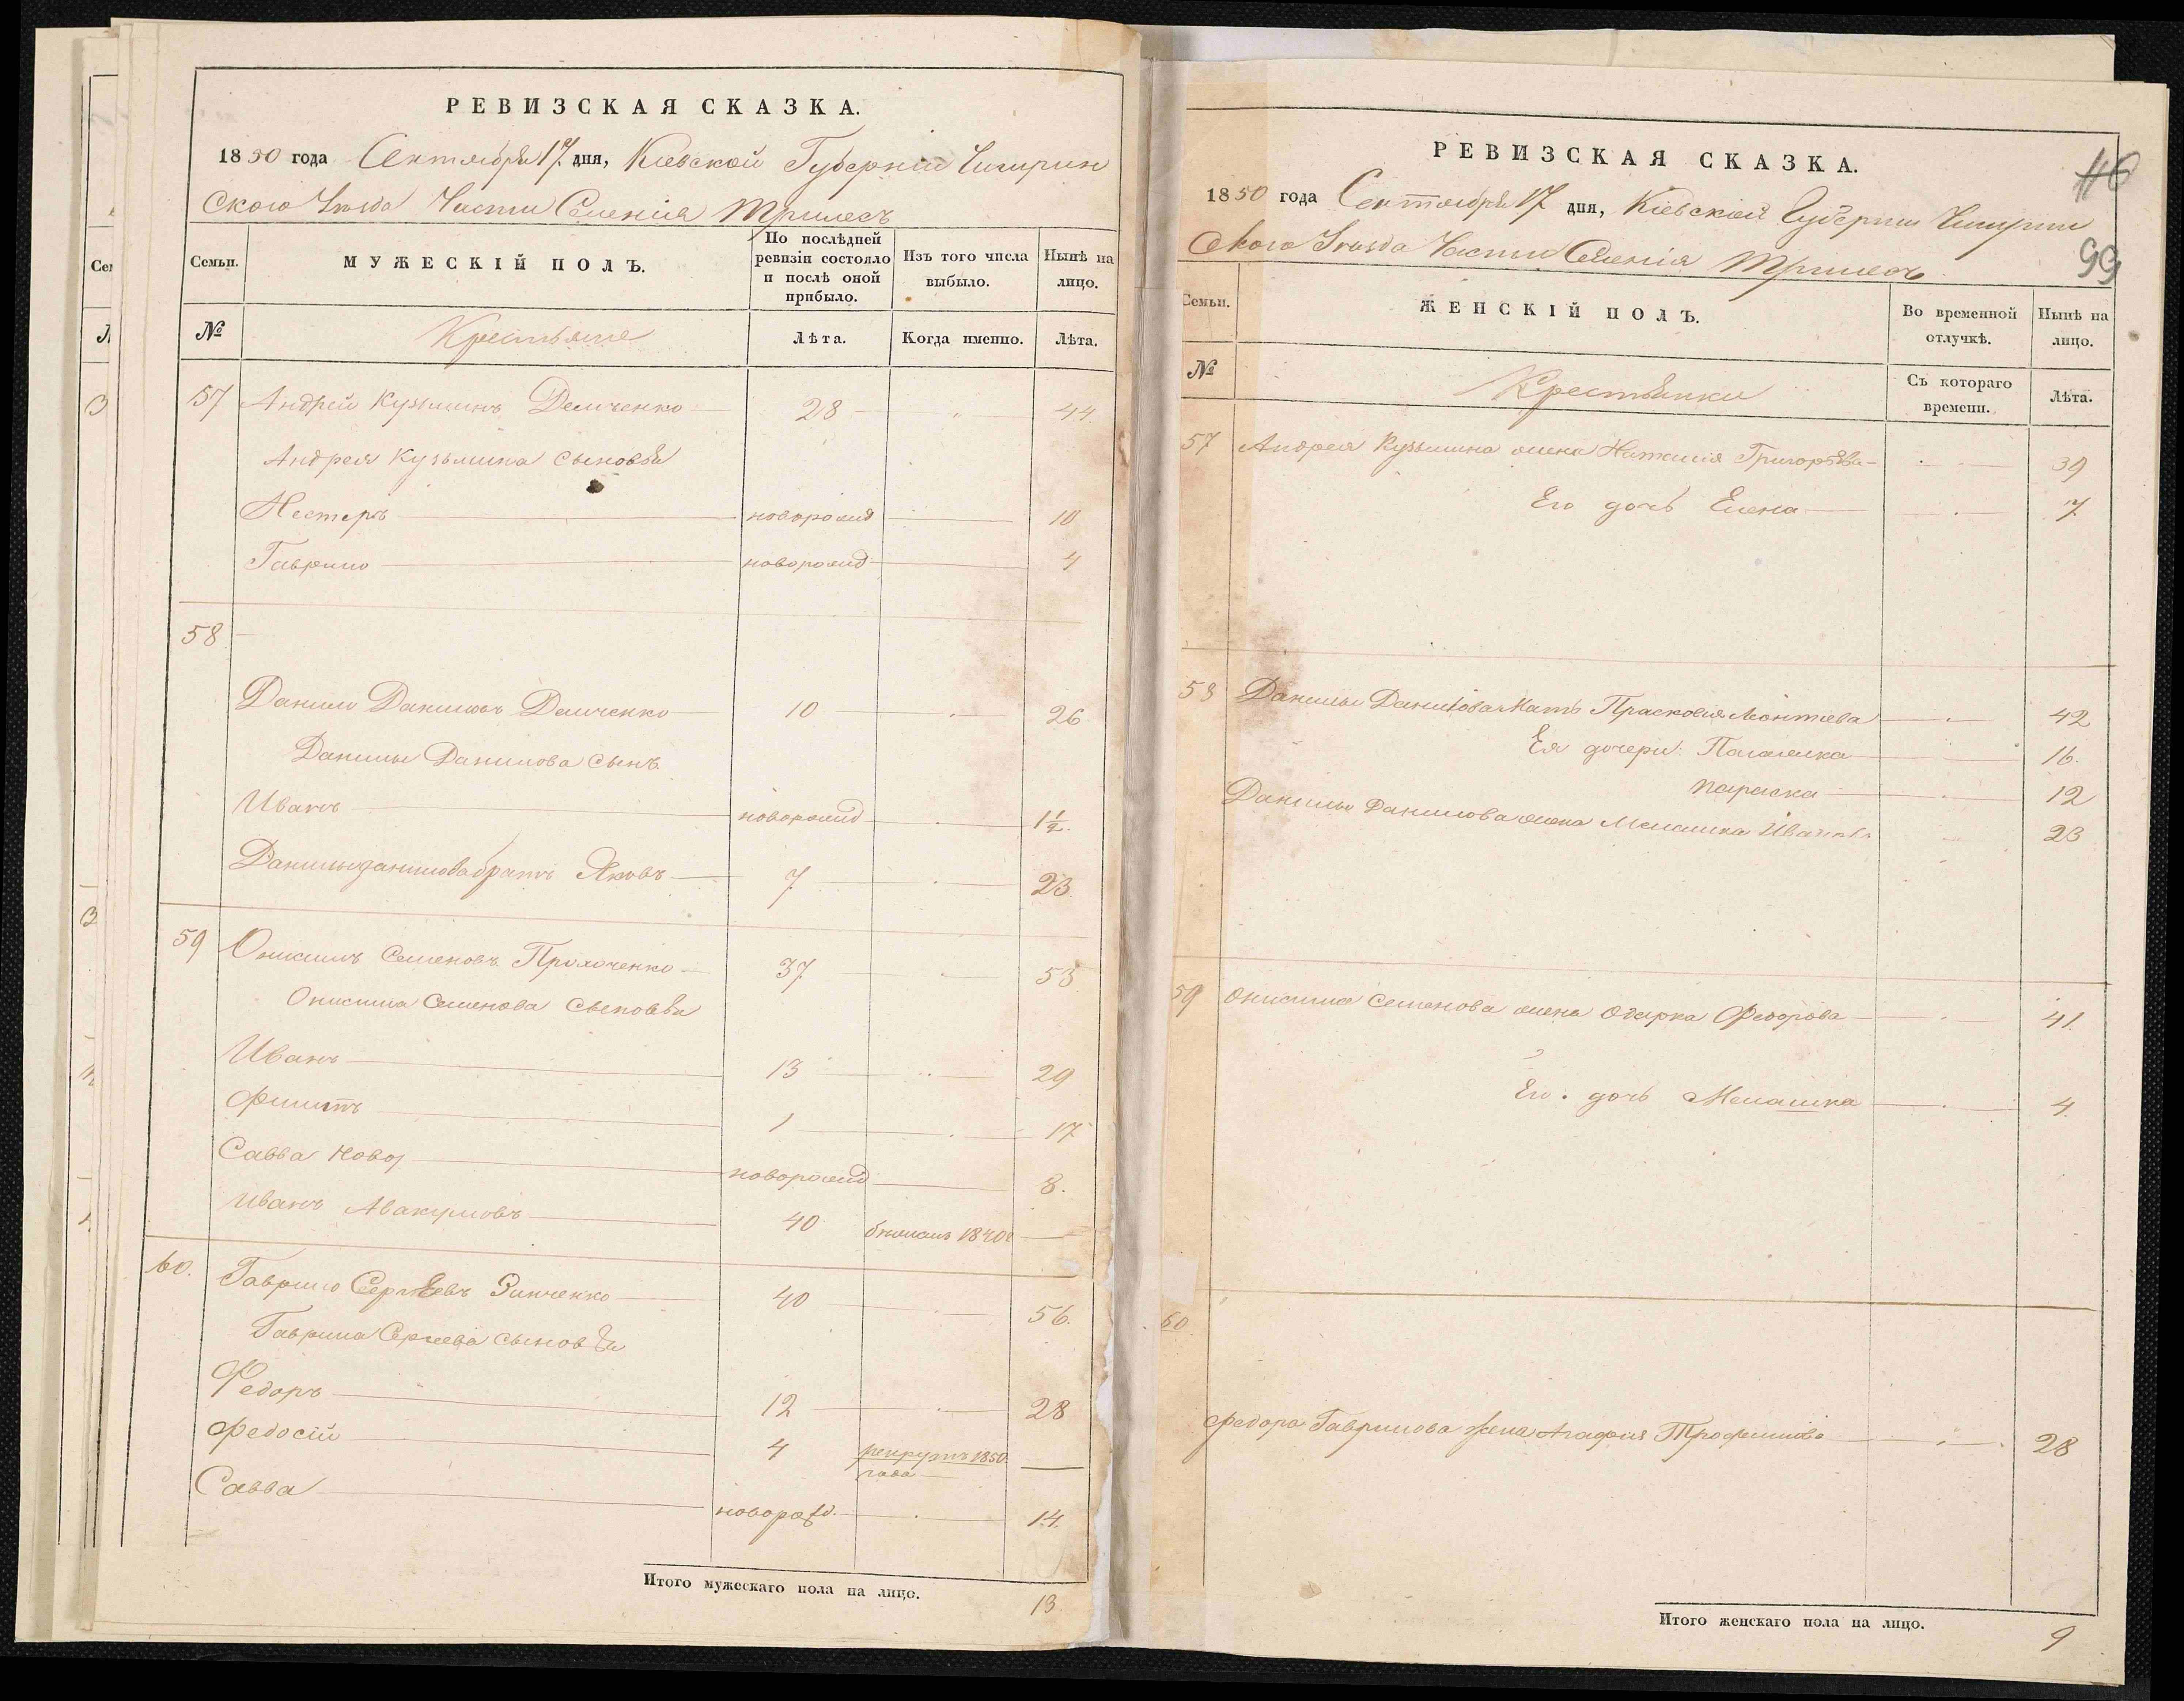 РЕВИЗСКАЯ СКАЗКА.
1850 года Сентября 17 дня, Кіевской Губерніи Чигирин
ского Уезда Части Селенія Трилесъ
Семьи. МУЖЕСКІЙ ПОЛЪ. По послѣдней ревизіи состояло и послѣ оной прибыло. Изъ того числа выбыло. Нынѣ на лицо.
№ Крестьяне Лѣта. Когда именно. Лѣта.
57 Андрей Кузьминъ Демченко 28 44.
Андрея Кузьмина сыновья
Нестеръ новорожд 10
Гаврило новорожд 4
58
Данило Даниловъ Демченко 10 26
Данилы Данилова сынъ
Иванъ новорожд 1 1/2.
Данилы Данилова братъ Яковъ 7 23
59 Онисимъ Семеновъ 37 53
Онисима Семенова сыновья
Иванъ 13 29
Филипъ 1 17
Савва новорожд 8.
Иванъ Авакумовъ 40 1840
60. Гаврило Сергѣевъ Зинченко 40 56.
Гаврила Сергеева сыновья
Федоръ 12 28
Федосій 4 рекрутъ 1850
года
Савва новорожд. 14.
Итого мужескаго пола на лицо. 13
РЕВИЗСКАЯ СКАЗКА.
1850 года Сентября 17 дня, Кіевской Губерніи Чигирин
ского Уезда Части Селенія Трилесъ
99
Семьи. ЖЕНСКІЙ ПОЛЪ. Во временной отлучкѣ. Нынѣ на лицо.
№ Крестьянки Съ котораго времени. Лѣта.
57 Андрея Кузьмина жена Наталія Григорьева 39
Его дочь Елена 7
58 Данилы Данилова мать Прасковія Леонтіева 42
Ея дочери: Палажка 16.
Параска 12
Данилы Данилова жена Мелашка Иванова 23
59 Онисима Семенова жена Одарка Федорова 41.
Его дочь Мелашка 4.
60
Федора Гаврилова жена Агафія Трофимова 28
Итого женскаго пола на лицо. 9